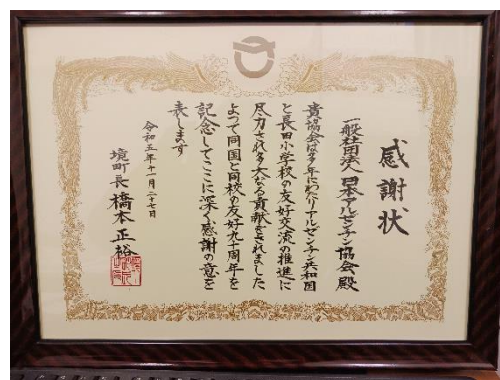 感謝状
一般社団法人日本アルゼンチン協会殿
貴協会は多年にわたりアルゼンチン共和国
と長田小学校の友好交流の推進に
尽力され多大なる貢献をされました
よって同国と同校の友好九十周年を
記念してここに深く感謝の意を
表します
令和五年十一月二十七日
境町長 橋本正裕